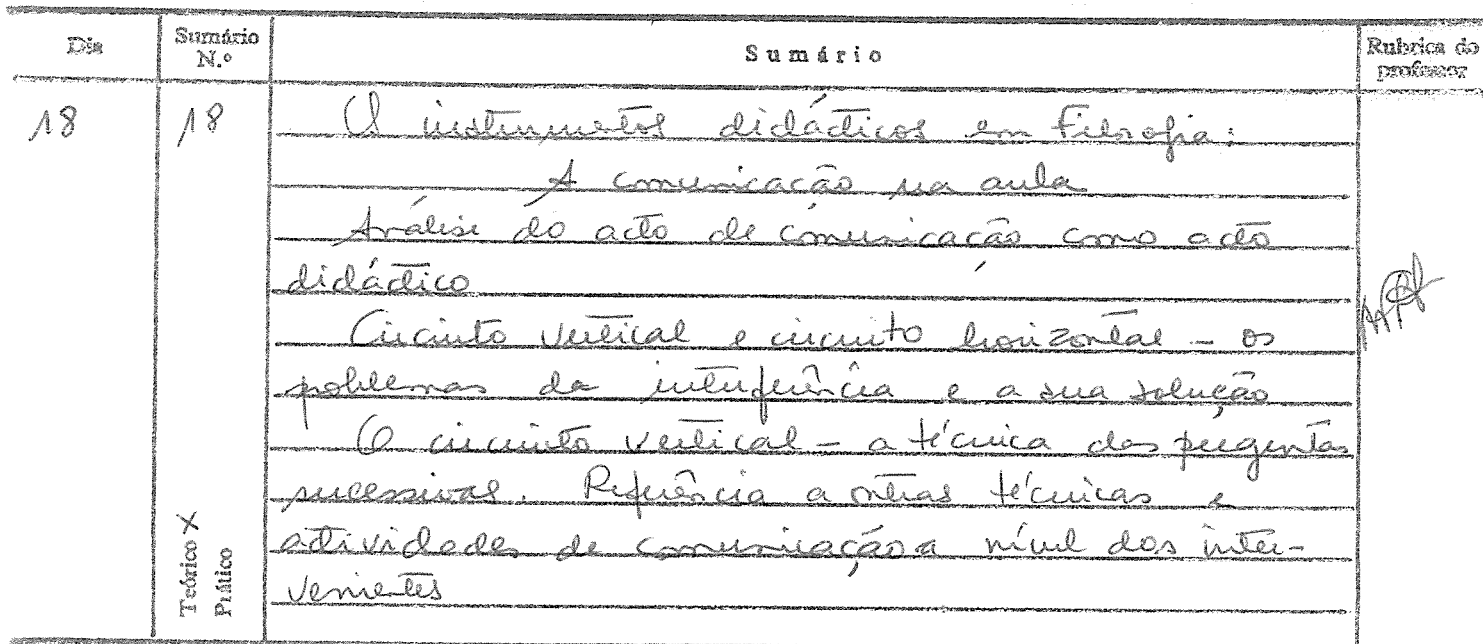 Dia Sumário N.º Sumário Rubrica do professor
18 18 Os instrumentos didácticos em Filosofia:
A comunicação na aula
Análise do acto de comunicação como acto
didáctico
Circuito vertical e circuito horizontal - os
problemas da interferência e a sua solução
O circuito vertical - a técnica das perguntas
sucessivas. Referência a outras técnicas e
actividades de comunicação a nível dos inter-
venientes
Teórico X
Prático